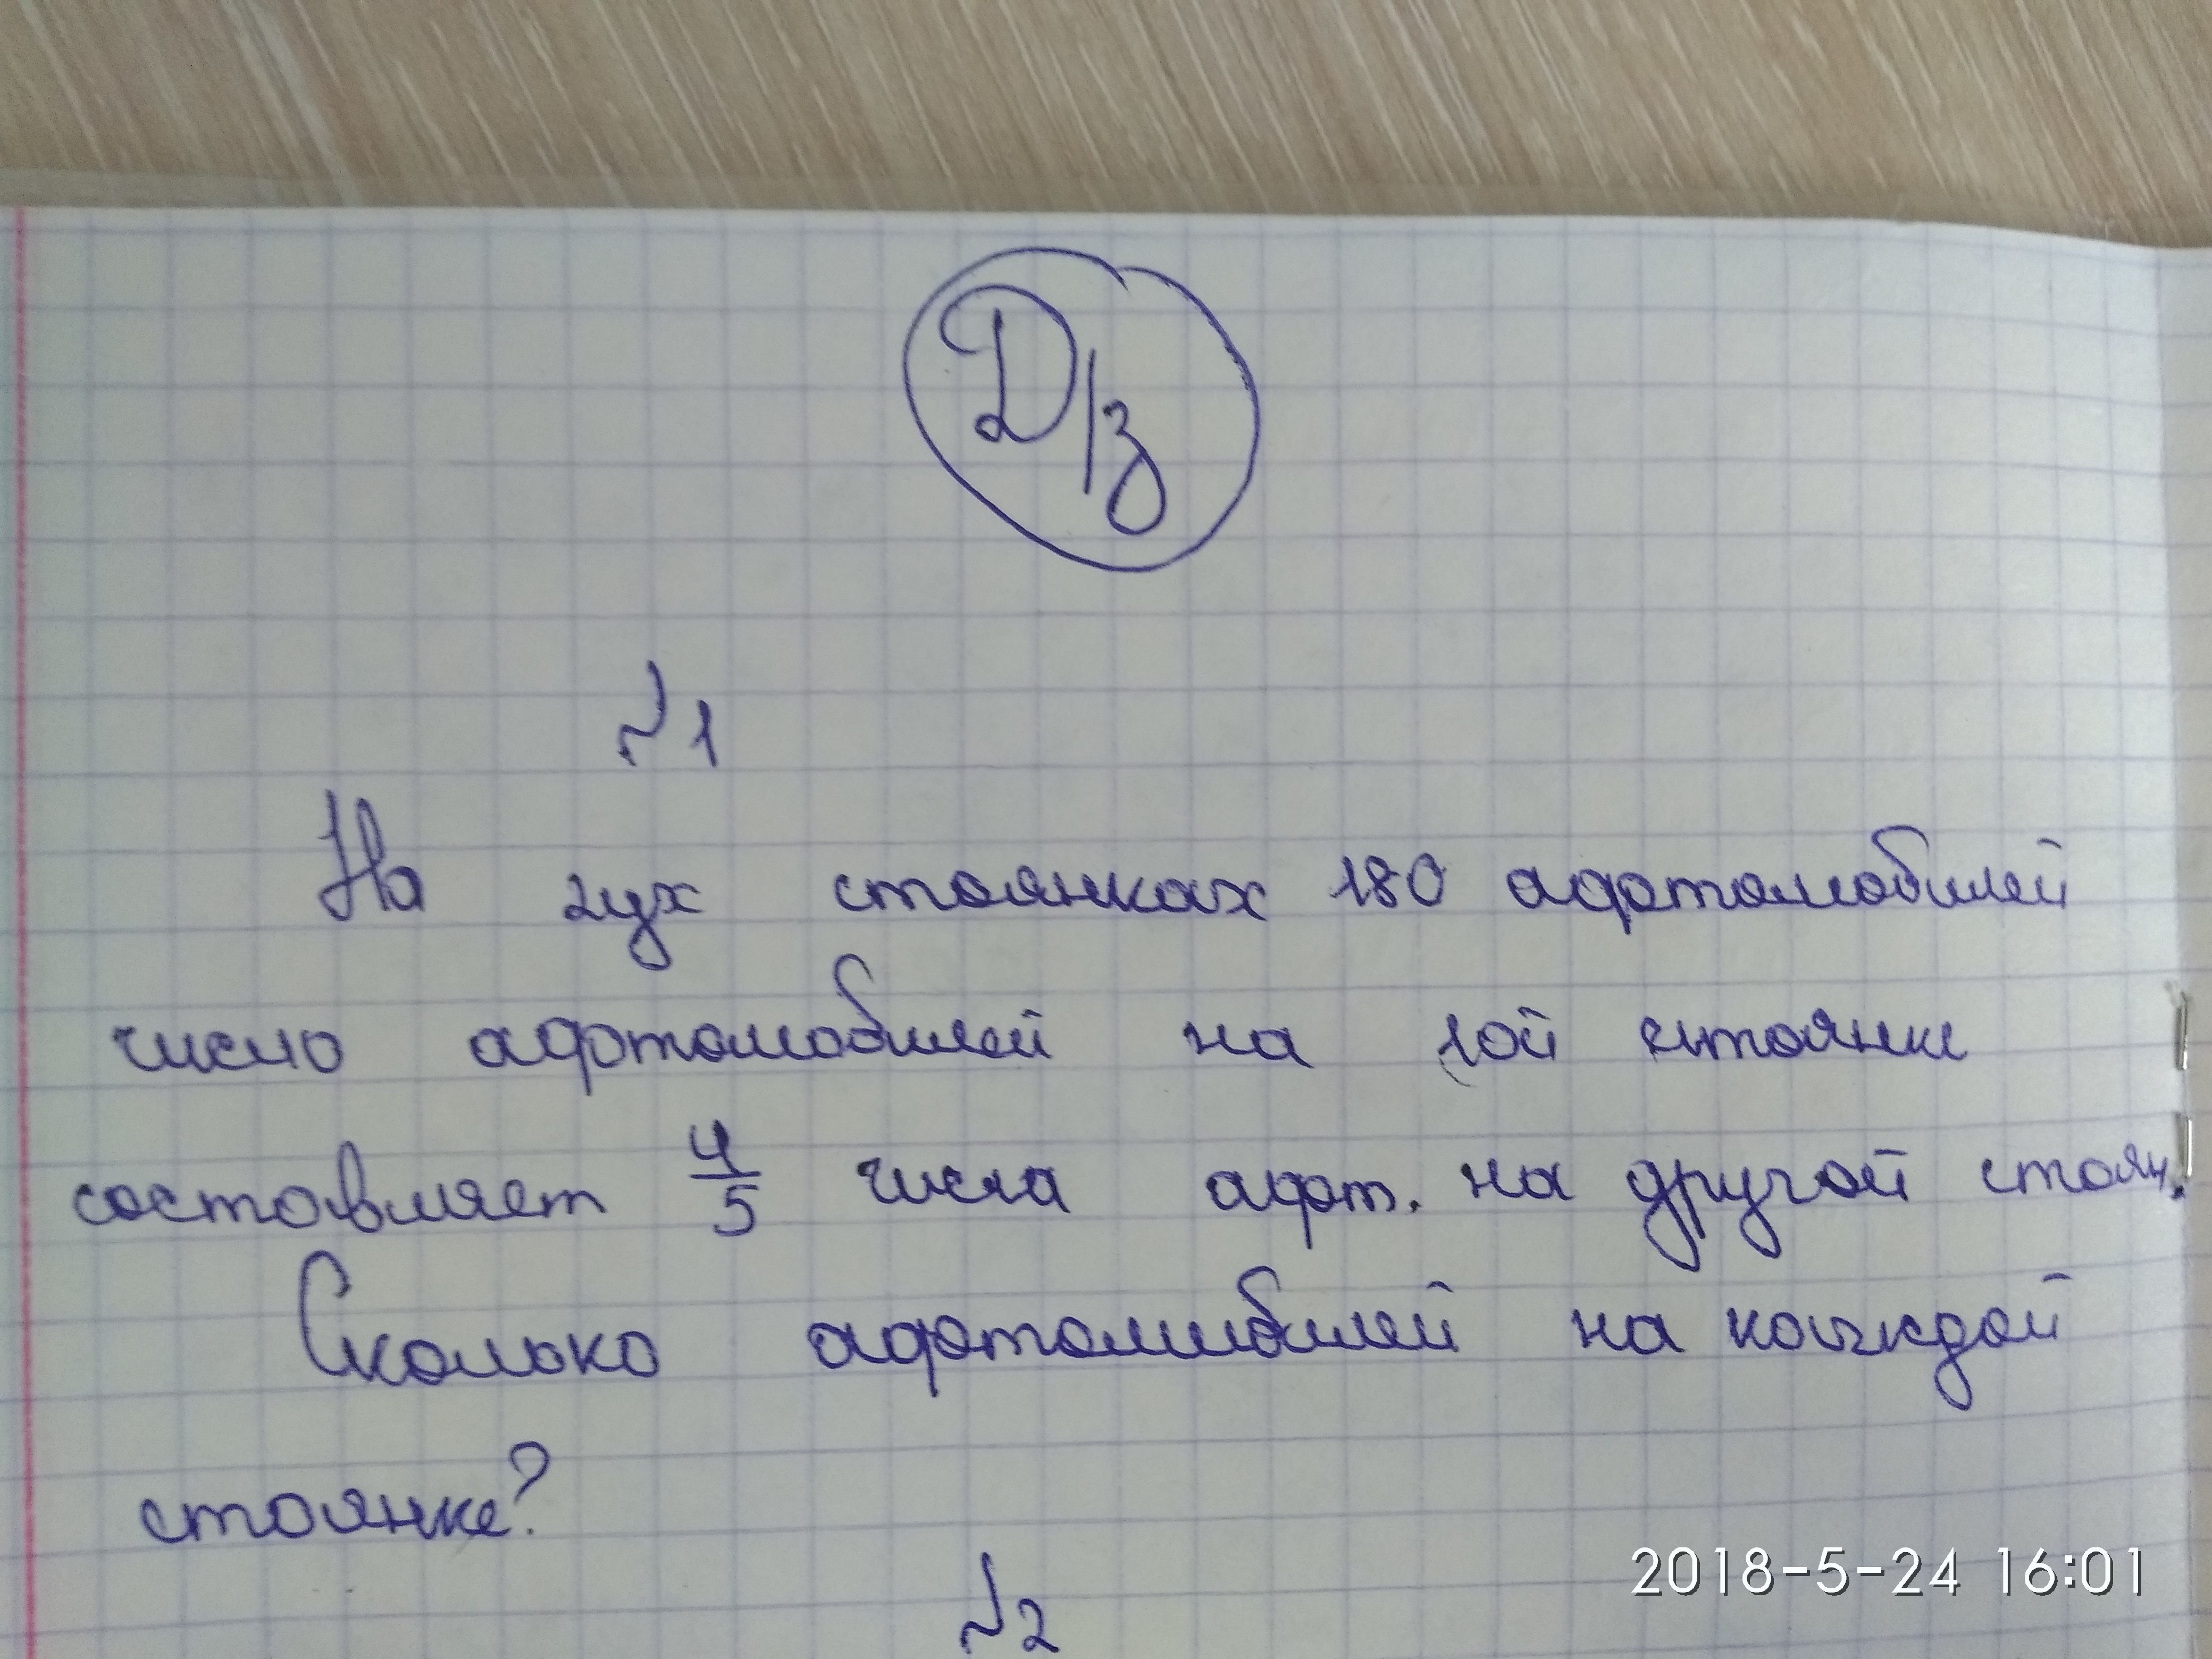 Д/з
№1
На 2ух стоянках 180 афтомобилей
число афтомобилей на 1ой стоянке
составляет 4/5 числа афт. на другой стоян.
Сколько афтомобилей на каждой
стоянке?
№2
2018-5-24 16:01